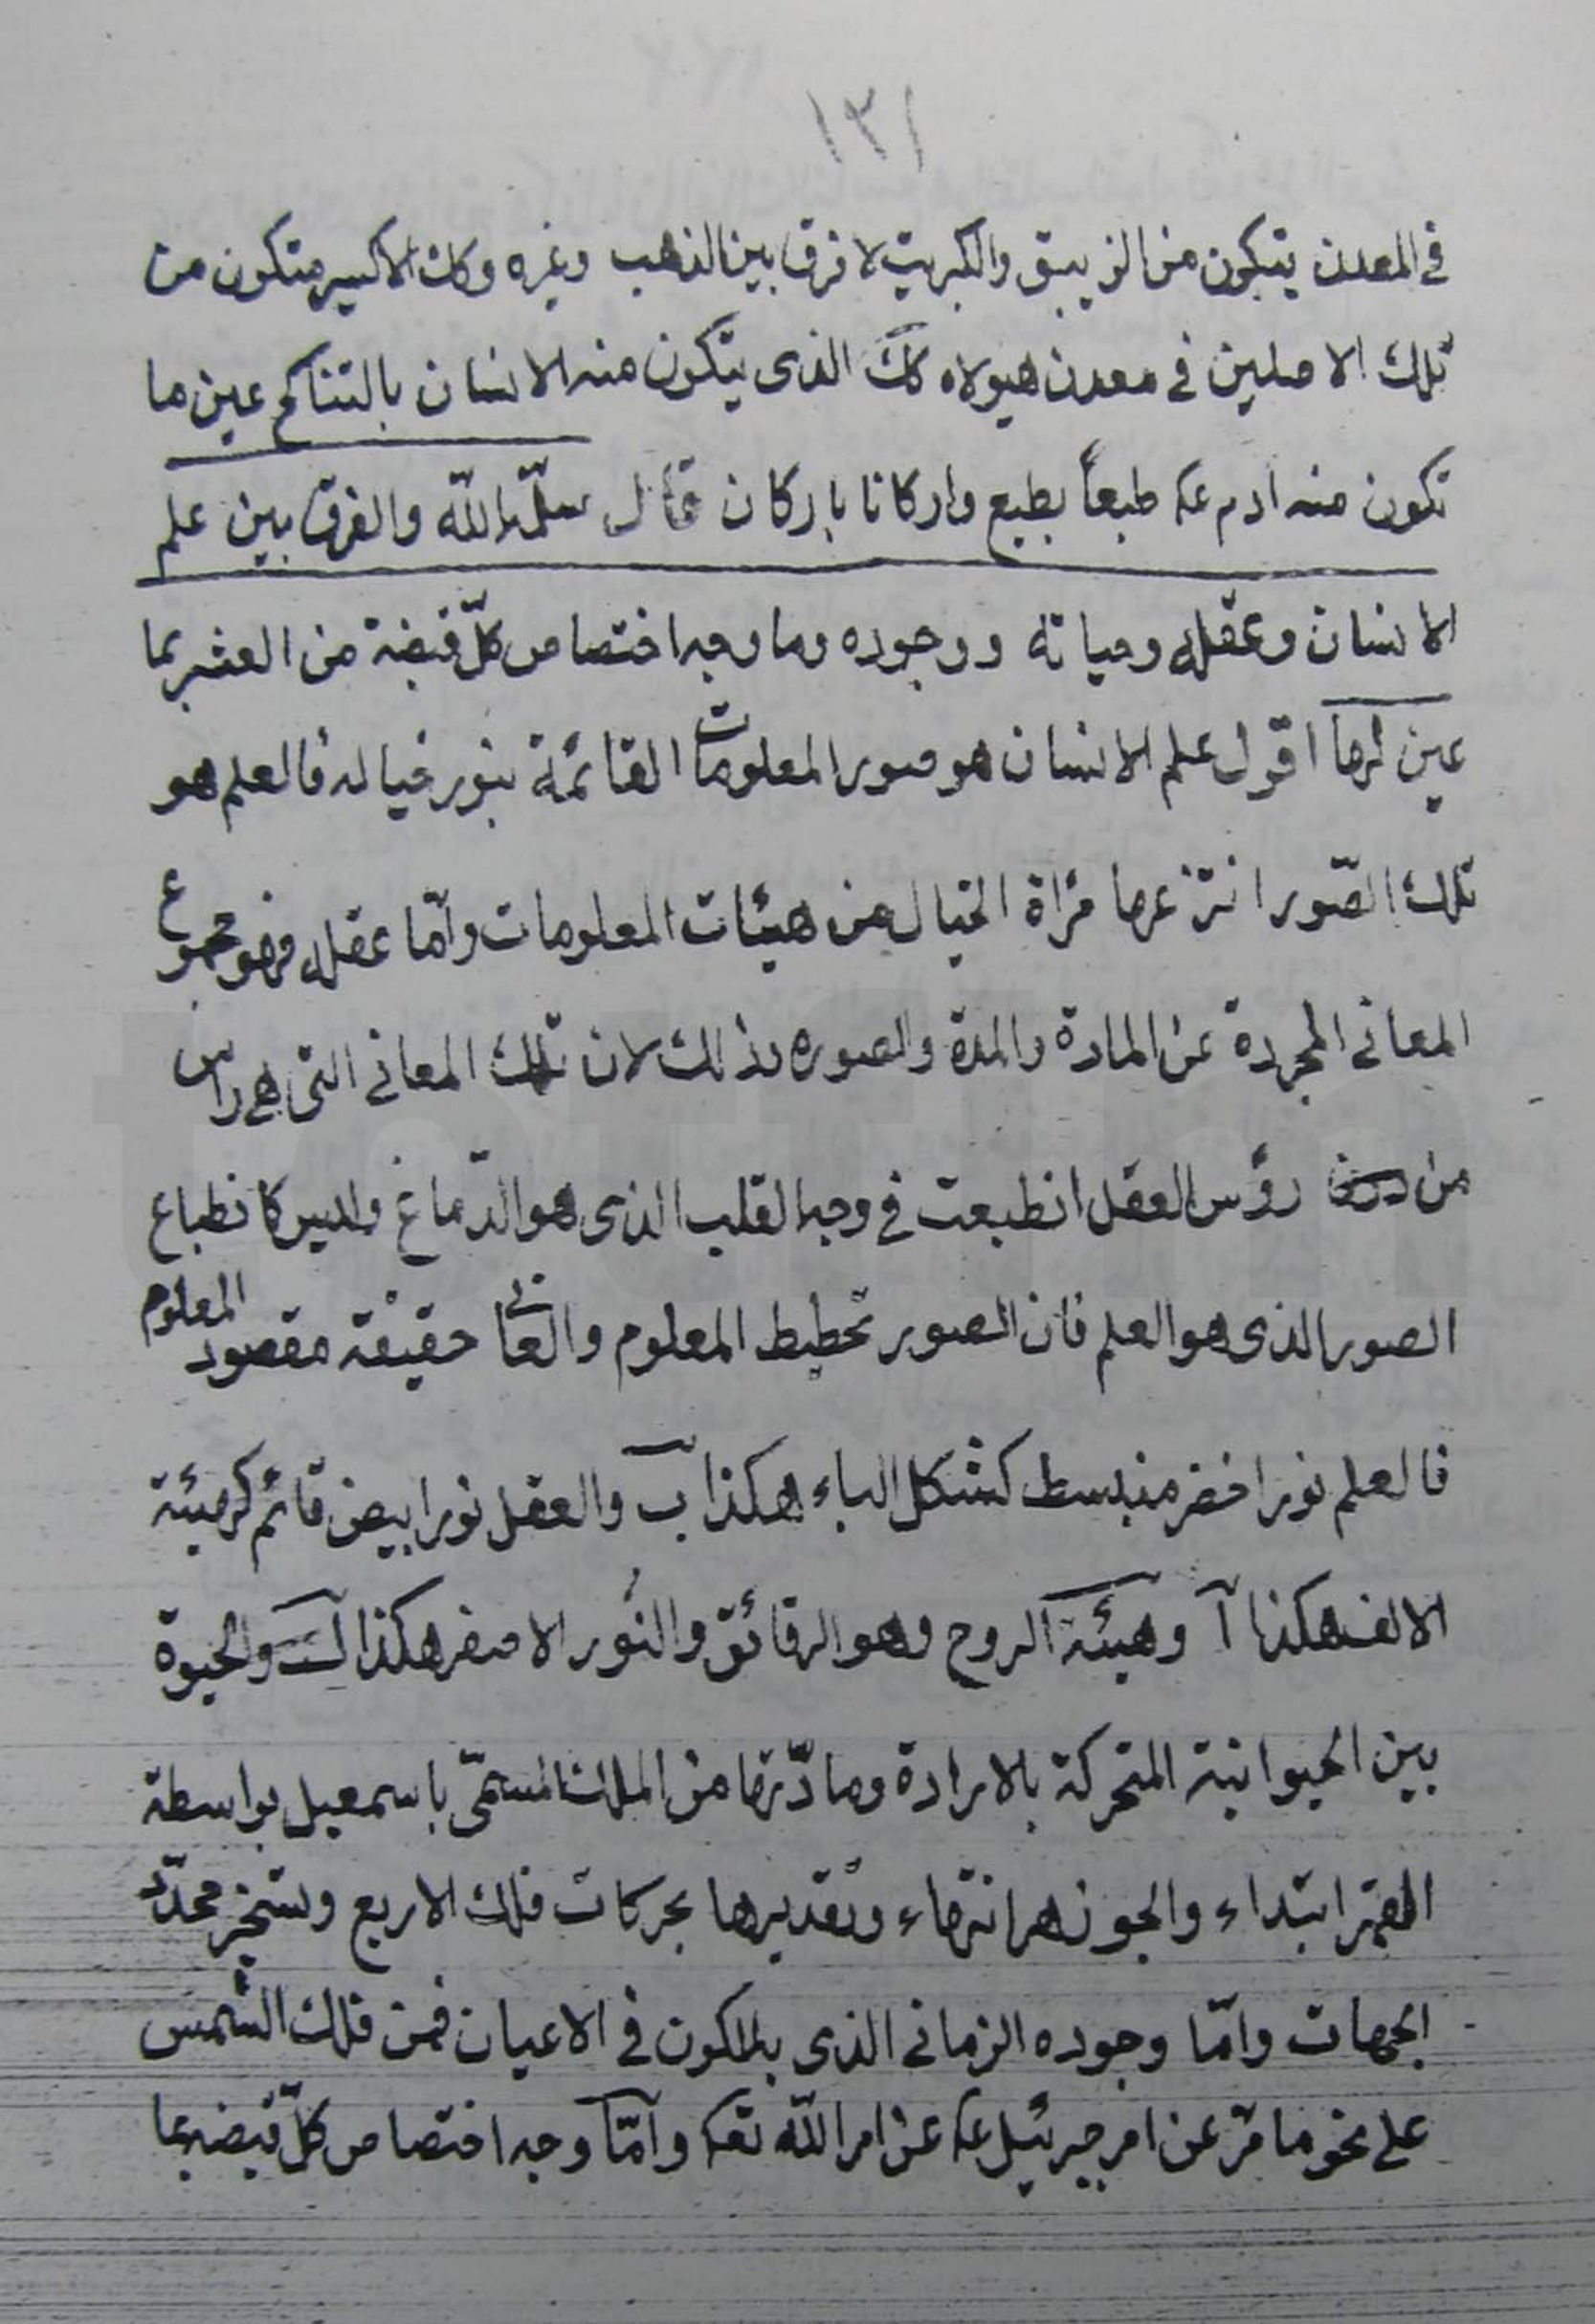 ١٣١
فى المعدن يتكون من الزيبق والكبريت لا فرق بين الذهب وغيره وكك الاكسير متكون من
تلك الاصلين فى معدن هيولاه كك الذى يتكون منه الانسان بالتناكح عين ما
تكون منه ادم عه طبعاً بطبع واركانا باركان قال سلّمه اللّه والفرق بين علم
الانسان وعقله وحياته ووجوده وما وجه اختصاص كلّ قبضة من العشر بما
عين لها اقول علم الانسان هو صور المعلومات القائمة بنور خياله فالعلم هو
تلك الصّور انتزعها مرأة الخيال من هيئات المعلومات وامّا عقله فهو مجموع
المعانى المجردة عن المادة والمدة والصوره وذلك لان تلك المعانى التى هى راس
من رؤس العقل انطبعت فى وجه القلب الذى هو الدّماغ وليس كانطباع
الصور الذى هو العلم فان الصور تخطيط المعلوم والمعانى حقيقة مقصود المعلوم
فالعلم نور اخضر منبسط كشكل الباء هكذا ب والعقل نور ابيض قائم كهيئة
الالف هكذا آ وهيئة الروح وهو الرقائق والنّور الاصفر هكذا والحيوة
بين الحيوانية المتحركة بالارادة ومادّتها من الملك المسمّى باسمعيل بواسطة
القمر ابتداء والجوزهر انتهاء وتقديرها بحركات فلك الاربع وتسخير محدّد
الجهات وامّا وجوده الزمانى الذى الكون فى الاعيان فمن فلك الشّمس
على نحو ما مرّ عن امر جبرئيل عه عن امر اللّه تعه وامّا وجه اختصاص كلّ قبضه بما